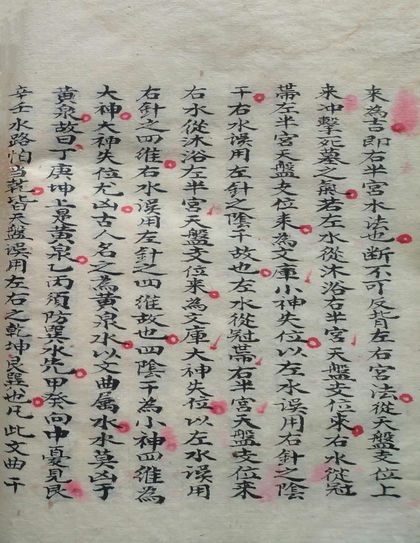 來為吉即右半宮水法也断不可反背左右宮法從天盤支位上
來冲擊死墓之氣若左水從沐浴右半宮天盤支位來右水從冠
帶左半宮天盤支位來為文庫小神失位以左水誤用右針之陰
干右水誤用左針之陰干故也左水從冠帶右半宮天盤支位來
右水從沐浴左半宮天盤支位來為文庫大神失位以左水誤用
右針之四維右水誤用左針之四維故也四陰干為小神四維為
大神大神失位尤凶古人名之為黃泉水以文曲属水水莫凶于
黃泉故曰丁庚坤上是黃泉乙丙須防巽水先甲癸向中憂見艮
辛壬水路怕當乾皆天盤誤用左右之乾坤艮巽也凡此文曲干